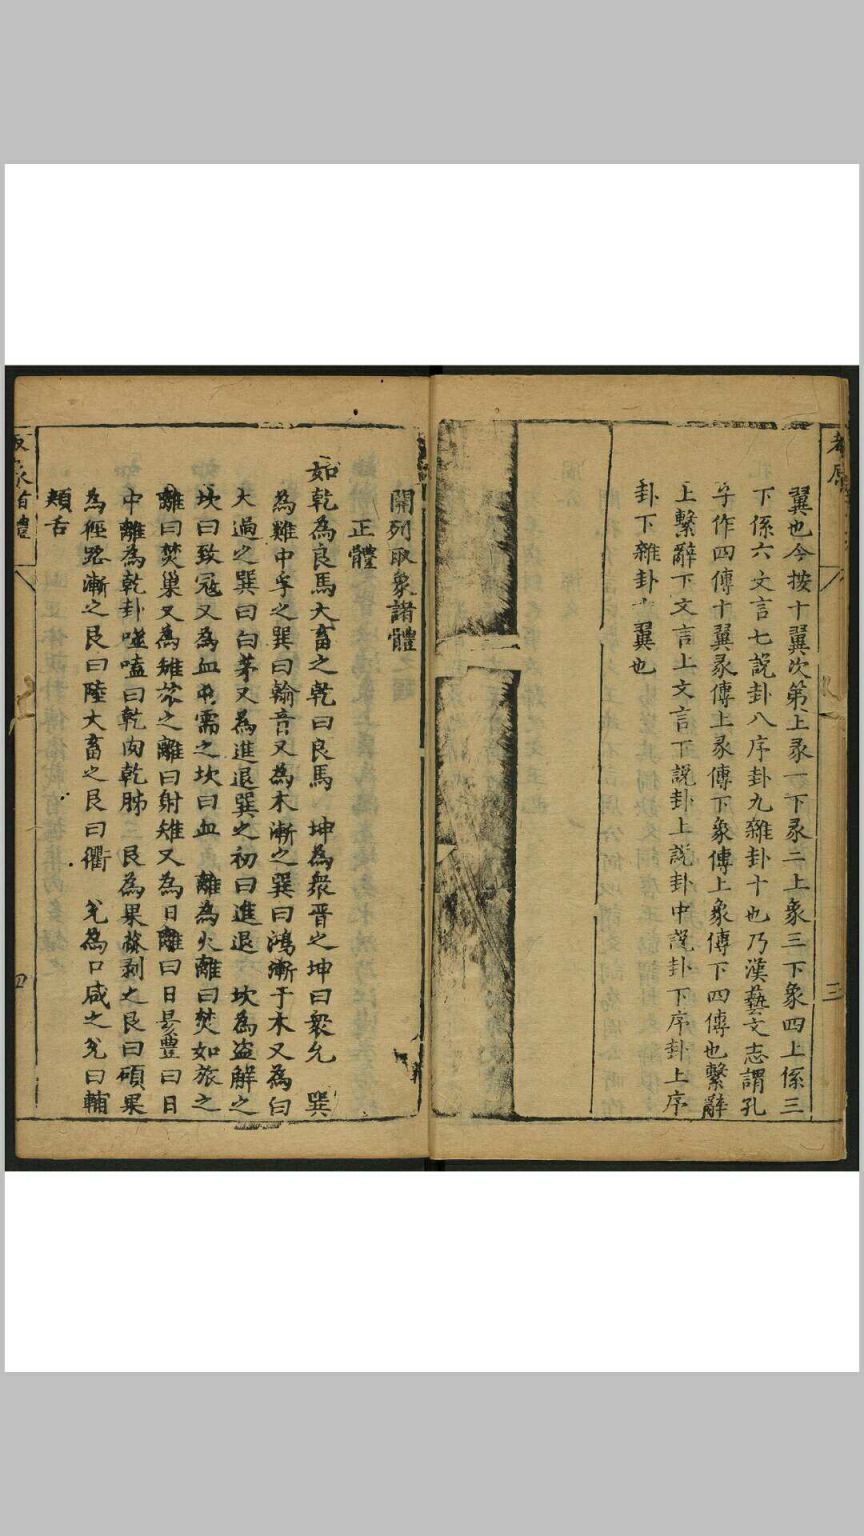 翼也今按十翼次第上彖一下彖二上象三下象四上係三
下係六文言七說卦八序卦九雜卦十也乃漢藝文志謂孔
子作四傳十翼彖傳上彖傳下象傳上象傳下四傳也繫辭
上繫辭下文言上文言下說卦上說卦中說卦下序卦上序
卦下雜卦十翼也
三
開列取象諸體
正體
如乾為良馬大畜之乾曰良馬 坤為衆晋之坤曰衆允 巽
為雞中孚之巽曰翰音又為木漸之巽曰鴻漸于木又為白
大過之巽曰白茅又為進退巽之初曰進退 坎為盗解之
坎曰致寇又為血卦需之坎曰血 離為火離曰焚如旅之
離曰焚巢又為雉旅之離曰射雉又為日離曰日昃豐曰日
中離為乾卦噬嗑曰乾肉乾胏 艮為果蓏剥之艮曰碩果
為徑路漸之艮曰陸大畜之艮曰衢 兌為口咸之兌曰輔
頰舌
四